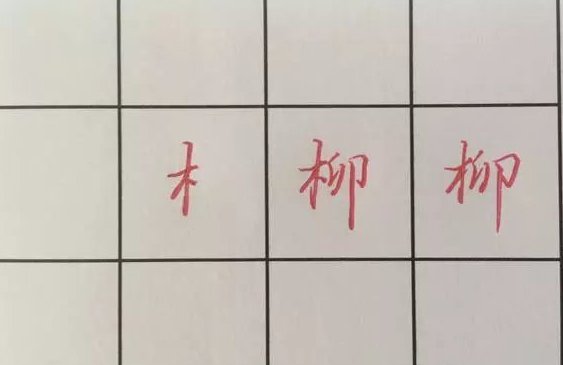 木 柳 柳